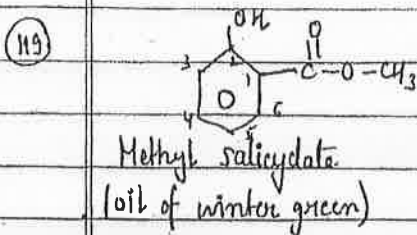 119
OH
O
3 2 1 C-O-CH3
4 5 6
Methyl salicydate
(oil of winter green)